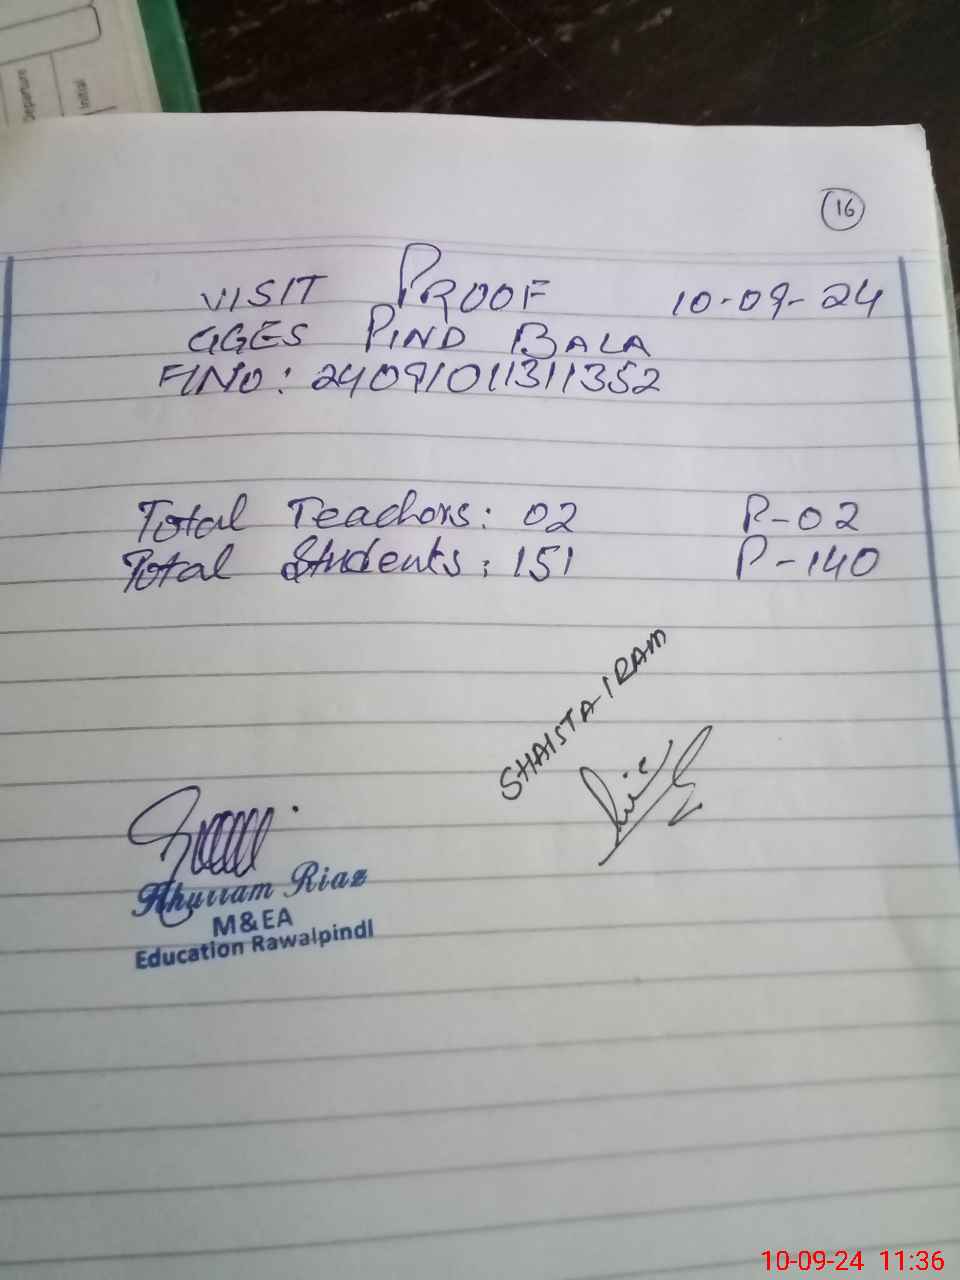 Departure
Initial
16
VISIT PROOF 10-09-24
GGES PIND BALA
FINO: 24091011311352
Total Teachors: 02 P-02
Total Students: 151 P-140
SHAISTA IRAM
Khurram Riaz
M&EA
Education Rawalpindi
10-09-24 11:36